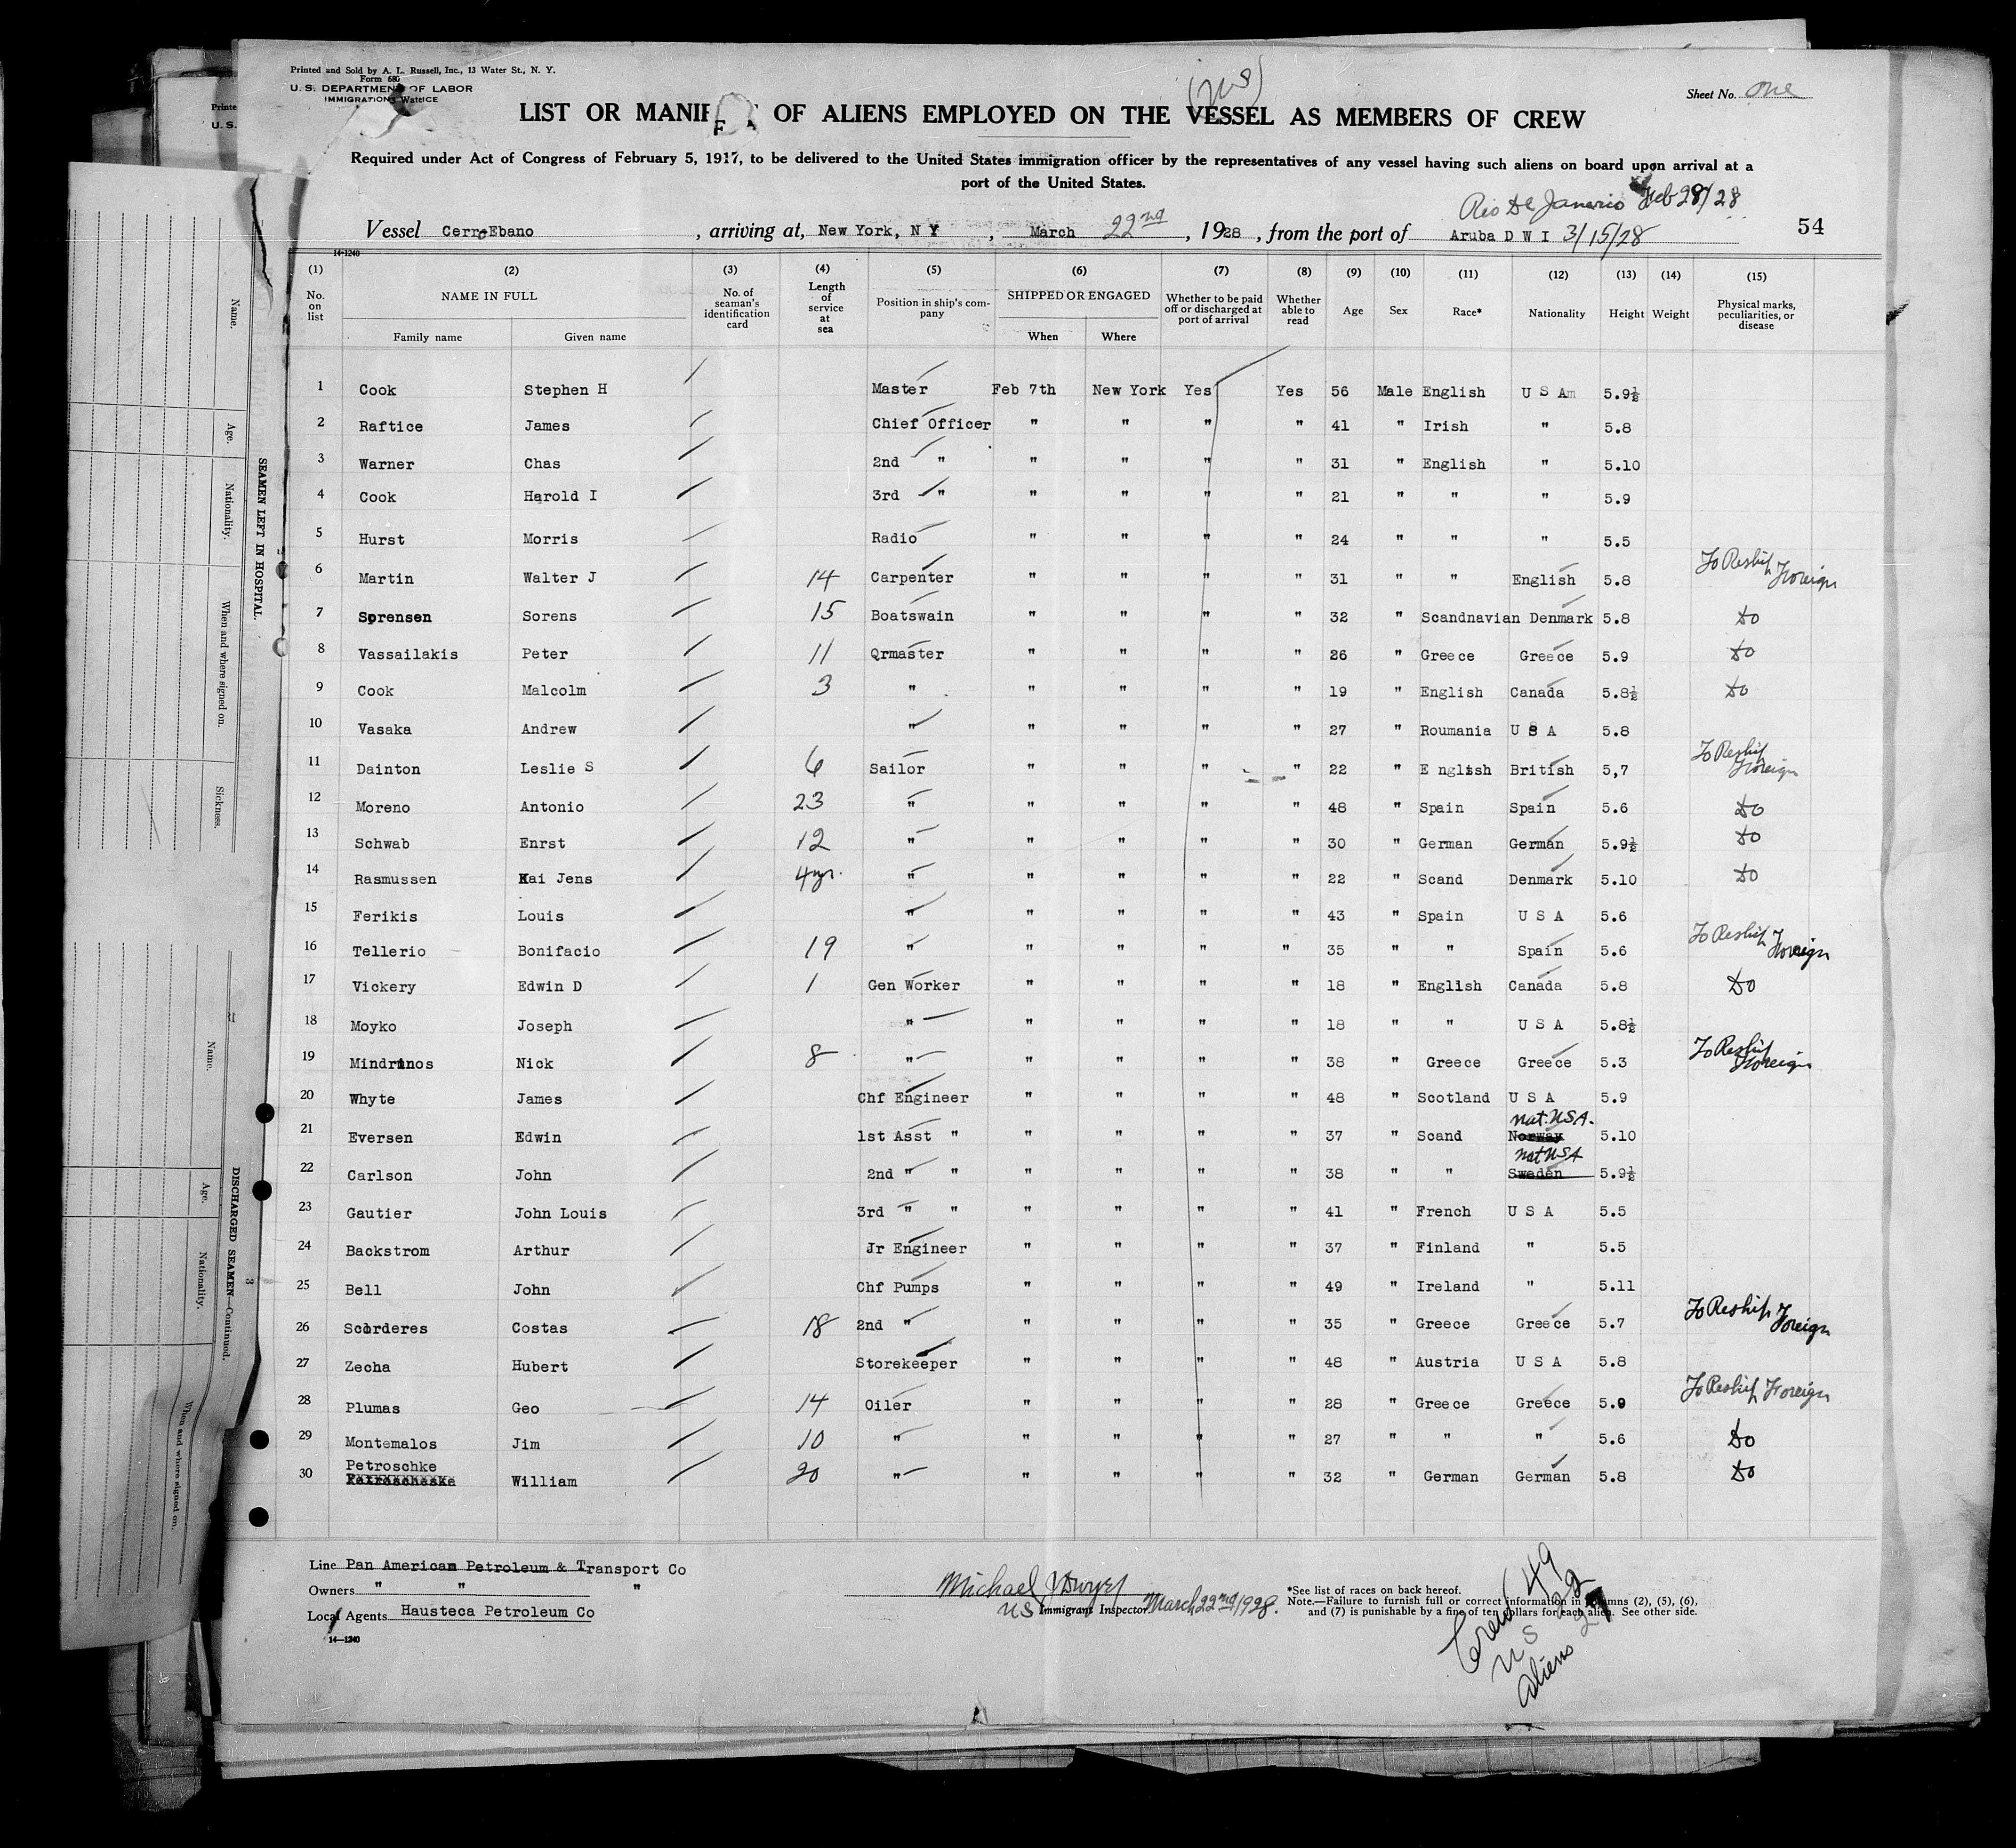 Printed and Sold by A. L. Russell, Inc., 13 Water St., N. Y.
Form 680
U. S. DEPARTMENT OF LABOR
IMMIGRATION
(US)
Sheet No. one
LIST OR MANIF OF ALIENS EMPLOYED ON THE VESSEL AS MEMBERS OF CREW
Required under Act of Congress of February 5, 1917, to be delivered to the United States immigration officer by the representatives of any vessel having such aliens on board upon arrival at a
port of the United States.
Rio De Janerio Feb 28/28
Vessel Cerro Ebano , arriving at, New York, N Y , March 22nd , 1928 , from the port of Aruba D W I 3/15/28 54
14-1240
(1) (2) (3) (4) (5) (6) (7) (8) (9) (10) (11) (12) (13) (14) (15)
No. on list NAME IN FULL Family name Given name No. of seaman's identification card Length of service at sea Position in ship's company SHIPPED OR ENGAGED When Where Whether to be paid off or discharged at port of arrival Whether able to read Age Sex Race* Nationality Height Weight Physical marks, peculiarities, or disease
1 Cook Stephen H Master Feb 7th New York Yes Yes 56 Male English U S Am 5.9½
2 Raftice James Chief Officer " " " " 41 " Irish " 5.8
3 Warner Chas 2nd " " " " " 31 " English " 5.10
4 Cook Harold I 3rd " " " " " 21 " " " 5.9
5 Hurst Morris Radio " " " " 24 " " " 5.5
6 Martin Walter J 14 Carpenter " " " " 31 " " English 5.8 To Reship Foreign
7 Sorensen Sorens 15 Boatswain " " " " 32 " Scandnavian Denmark 5.8 Do
8 Vassailakis Peter 11 Qrmaster " " " " 26 " Greece Greece 5.9 Do
9 Cook Malcolm 3 " " " " " 19 " English Canada 5.8½ Do
10 Vasaka Andrew " " " " " 27 " Roumania U S A 5.8
11 Dainton Leslie S 6 Sailor " " " " 22 " E nglish British 5,7 To Reship Foreign
12 Moreno Antonio 23 " " " " " 48 " Spain Spain 5.6 Do
13 Schwab Enrst 12 " " " " " 30 " German German 5.9½ Do
14 Rasmussen Kai Jens 4 yr. " " " " " 22 " Scand Denmark 5.10 Do
15 Ferikis Louis " " " " " 43 " Spain U S A 5.6
16 Tellerio Bonifacio 19 " " " " " 35 " " Spain 5.6 To Reship Foreign
17 Vickery Edwin D 1 Gen Worker " " " " 18 " English Canada 5.8 Do
18 Moyko Joseph " " " " " 18 " " U S A 5.8½
19 Mindrinos Nick 8 " " " " " 38 " Greece Greece 5.3 To Reship Foreign
20 Whyte James Chf Engineer " " " " 48 " Scotland U S A 5.9
21 Eversen Edwin 1st Asst " " " " " 37 " Scand Norway nat. USA. 5.10
22 Carlson John 2nd " " " " " " 38 " " Sweden nat USA 5.9½
23 Gautier John Louis 3rd " " " " " " 41 " French U S A 5.5
24 Backstrom Arthur Jr Engineer " " " " 37 " Finland " 5.5
25 Bell John Chf Pumps " " " " 49 " Ireland " 5.11
26 Scorderes Costas 18 2nd " " " " " 35 " Greece Greece 5.7 To Reship Foreign
27 Zecha Hubert Storekeeper " " " " 48 " Austria U S A 5.8
28 Plumas Geo 14 Oiler " " " " 28 " Greece Greece 5.9 To Reship Foreign
29 Montemalos Jim 10 " " " " " 27 " " " 5.6 Do
30 Petroschke William 20 " " " " " 32 " German German 5.8 Do
Line Pan American Petroleum & Transport Co
Owners " " "
Local Agents Hausteca Petroleum Co
14-1240
Michael J Dwyer
US Immigrant Inspector. March 22nd, 1928.
*See list of races on back hereof.
Note.—Failure to furnish full or correct information in columns (2), (5), (6),
and (7) is punishable by a fine of ten dollars for each alien. See other side.
Crew 49
US 22
Aliens 27
SEAMEN LEFT IN HOSPITAL.
Name.
Age.
Nationality.
When and where signed on.
Sickness.
DISCHARGED SEAMEN—Continued.
Name.
Age.
Nationality.
When and where signed on.
3